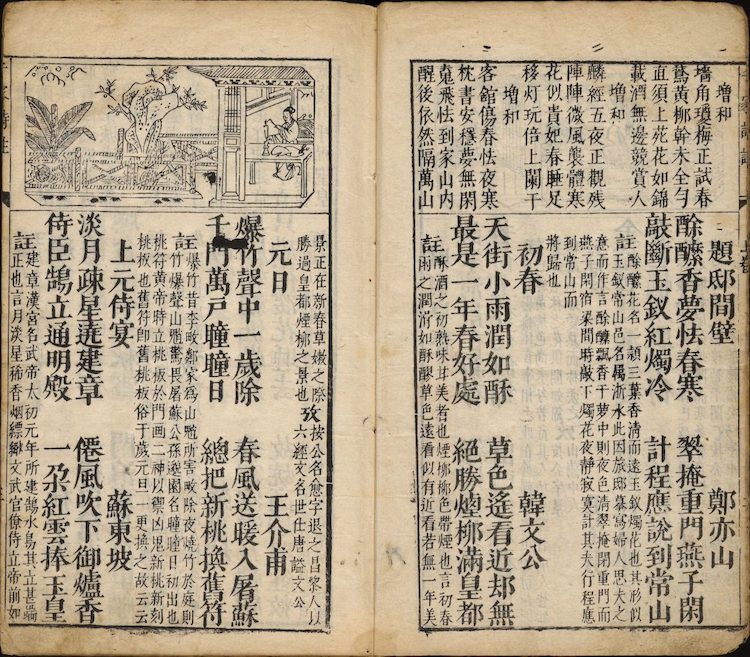 增和
墻角瓊梅正試春
鶯黃柳幹未全勻
直須上苑花如錦
載酒無邊競賞人
增和
麟經五夜正觀殘
陣陣微風襲體寒
花似貴妃春睡足
移灯玩倍上闌干
增和
客舘傷春怯夜寒
枕書安穩夢無閑
飛怯到家山内
醒後依然隔萬山
題邸間壁 鄭亦山
酴醾香夢怯春寒 翠掩重門燕子閑
敲斷玉釵紅燭冷 計程應說到常山
註酴醾花名一頴三葉香清而遠玉釵燭花也其形似
玉釵常山邑名屬浙水此因旅邸暮寫婦人思夫之
意而作言酴醾飄香于夢中則夜色清翠掩閉重門而
燕子閑宿梁間時敲下燭花夜靜寂寞計其夫行程應
到常山而
將歸也
初春 韓文公
天街小雨潤如酥 草色遙看近却無
最是一年春好處 絕勝煙柳滿皇都
註酥酒之初熟味甘美者也煙柳色帶煙也言初春
雨之潤滑如酥醪草色遠看似有近看若無一年美
景正在新春草嫩之際
勝過皇都煙柳之景也
攷按公名愈字退之昌黎人以
六經文名世仕唐謚文公
元日 王介甫
爆竹聲中一歲除 春風送暖入屠蘇
千門萬戶瞳瞳日 總把新桃換舊符
註爆竹昔李畋鄰家為山魈所害畋除夜燒竹於庭則
竹爆聲山魈驚畏屠蘇公孫邈園名瞳瞳日初出也
桃符黃帝時立桃板於門画二神以禦凶鬼新桃新刻
桃板也舊符即舊桃板俗于歲元旦一更換之故云云
上元侍宴 蘇東坡
淡月疎星遶建章 僊風吹下御爐香
侍臣鵠立通明殿 一朶紅雲捧玉皇
註建章漢宮名武帝太初元年所建鵠水鳥其立甚端
正也言月淡星稀香烟縹緲文武官僚侍立帝前如